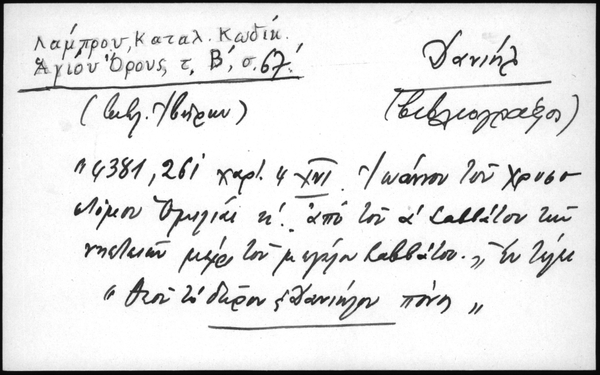 Λάμπρου, Καταλ. Κωδίκ.
Ἁγίου Ὄρους τ. Β', σ. 67.
Δανιήλ
(Βιβλ. Ἰβήρων)
(Βιβλιογράφος)
"4381, 261 χαρτ. 4 XVI. Ἰωάννου τοῦ Χρυσο
στόμου Ὁμιλίαι κ'. ἀπὸ τοῦ α' Σαββάτου τῶν
νηστειῶν μέχρι τοῦ μεγάλου Σαββάτου. „ Ἐν τέλει
"Θεοῦ τὸ δῶρον ἐ Δανιήλου πόνος „